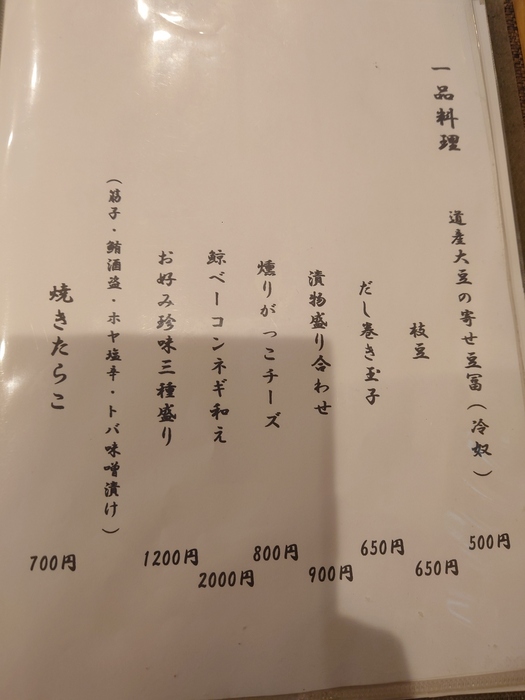 一品料理
道産大豆の寄せ豆冨(冷奴)
500円
枝豆
650円
だし巻き玉子
650円
漬物盛り合わせ
900円
燻りがっこチーズ
800円
鯨ベーコンネギ和え
2000円
お好み珍味三種盛り
1200円
(筋子・鮪酒盗・ホヤ塩辛・トバ味噌漬け)
焼きたらこ
700円